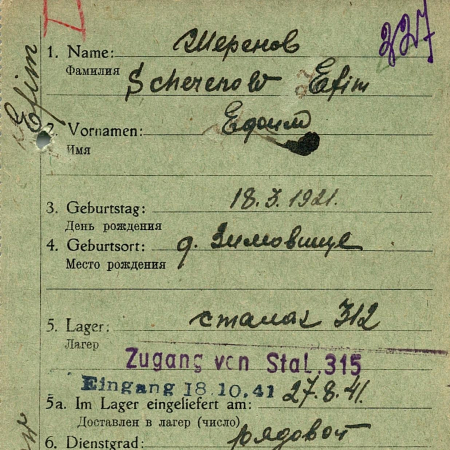 327
Efim
1. Name: Шеренов
Фамилия
Scherenow Efim
2. Vornamen: Ефим
Имя
3. Geburtstag: 18.3.1921.
День рождения
4. Geburtsort: д. Зимовище
Место рождения
5. Lager: сталаг 312
Лагерь
Zugang von Stal. 315
Eingang 18.10.41
5a. Im Lager eingeliefert am: 27.8.41.
Доставлен в лагерь (число)
6. Dienstgrad: рядовой